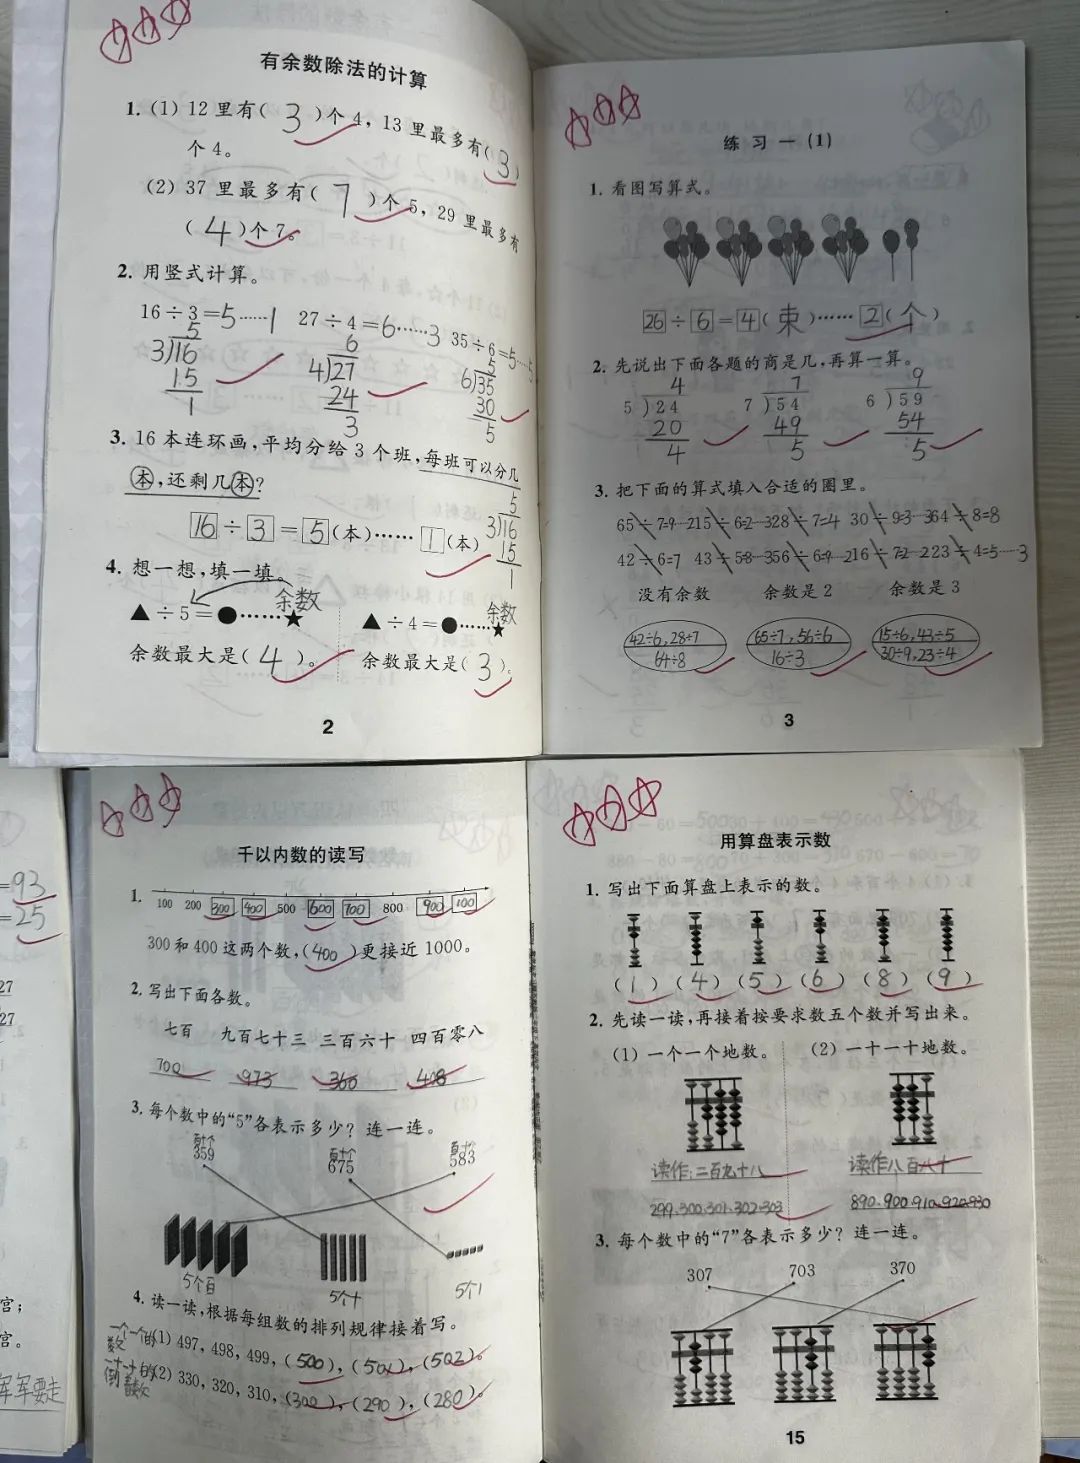 有余数除法的计算
1. (1) 12 里有( 3 )个 4, 13 里最多有( 3 )
个 4。
(2) 37 里最多有( 7 )个 5, 29 里最多有
( 4 )个 7。
2. 用竖式计算。
16÷3=5……1 27÷4=6……3 35÷6=5……5
5 6 5
3)16 4)27 6)35
15 24 30
1 3 5
3. 16 本连环画,平均分给 3 个班,每班可以分几
本,还剩几本?
16 ÷ 3 = 5 (本)…… 1 (本)
5
3)16
15
1
4. 想一想,填一填。
余数 余数
▲÷5=●……★ ▲÷4=●……★
余数最大是( 4 )。 余数最大是( 3 )。
2
练 习 一 (1)
1. 看图写算式。
26 ÷ 6 = 4 (束)…… 2 (个)
2. 先说出下面各题的商是几,再算一算。
4 7 9
5)24 7)54 6)59
20 49 54
4 5 5
3. 把下面的算式填入合适的圈里。
65÷7=9…2 15÷6=2…3 28÷7=4 30÷9=3…3 64÷8=8
42÷6=7 43÷5=8…3 56÷6=9…2 16÷7=2…2 23÷4=5……3
没有余数 余数是 2 余数是 3
42÷6,28÷7 65÷7,56÷6 15÷6,43÷5
64÷8 16÷3 30÷9,23÷4
3
=93
=25
27
27
宫;
宫。
军军要走
千以内数的读写
1. 100 200 300 400 500 600 700 800 900 100
300 和 400 这两个数,( 400 )更接近 1000。
2. 写出下面各数。
七百 九百七十三 三百六十 四百零八
700 973 360 408
3. 每个数中的“5”各表示多少? 连一连。
百十个 百十个 百十个
359 675 583
5个百 5个十 5个1
4. 读一读,根据每组数的排列规律接着写。
一个一个的数 (1) 497, 498, 499, ( 500 ), ( 501 ), ( 502 )。
一十一十的倒着数 (2) 330, 320, 310, ( 300 ), ( 290 ), ( 280 )。
用算盘表示数
1. 写出下面算盘上表示的数。
( 1 ) ( 4 ) ( 5 ) ( 6 ) ( 8 ) ( 9 )
2. 先读一读,再接着按要求数五个数并写出来。
(1) 一个一个地数。 (2) 一十一十地数。
读作:二百九十八 读作八百八十
299.300.301.302.303 890.900.910.920.930
3. 每个数中的“7”各表示多少? 连一连。
307 703 370
15